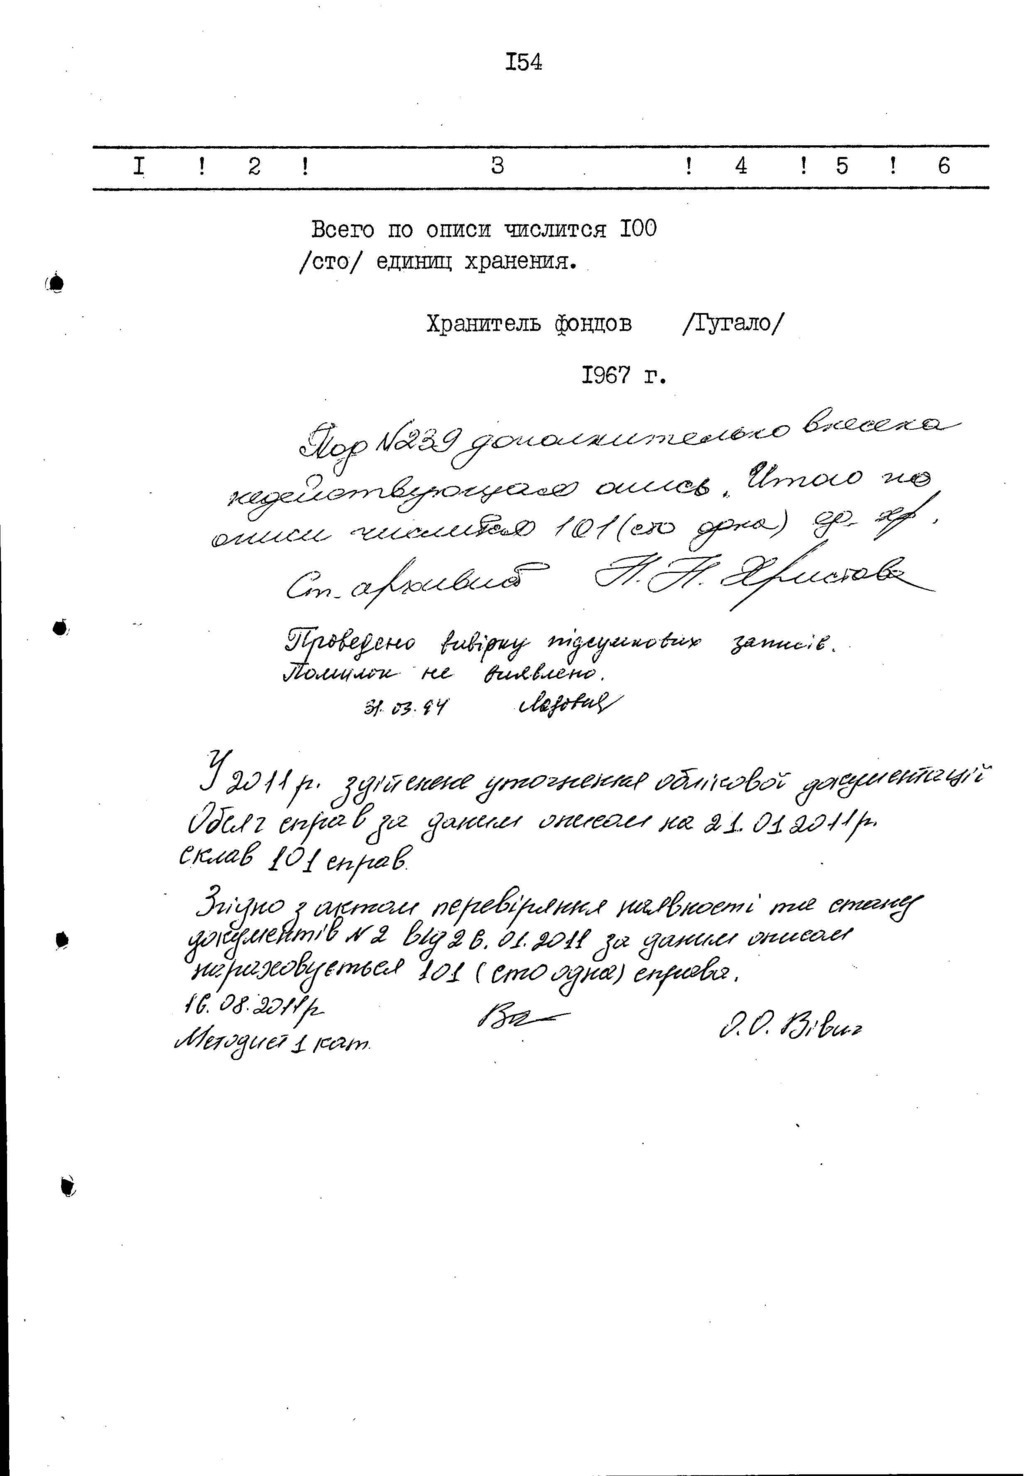 I54
I ! 2 ! 3 ! 4 ! 5 ! 6
Всего по описи числится I00
/сто/ единиц хранения.
Хранитель фондов /Гугало/
I967 г.
Под №239 дополнительно внесена
недействующая опись. Итого по
описи числится 101 (сто одна) ед. хр.
Ст. архивист Н. Н. Христова
Проведено вивірку підсумкових записів.
Помилок не виявлено.
31.03.94
У 2011 р. здійснене уточнення облікової документації
Обсяг справ за даним описом на 21.01.2011 р.
склав 101 справ.
Згідно з актом перевіряння наявності та стану
документів №2 від 26.01.2011 за даним описом
нараховується 101 (сто одна) справа.
16.08.2011 р
Методист 1 кат. О.О.